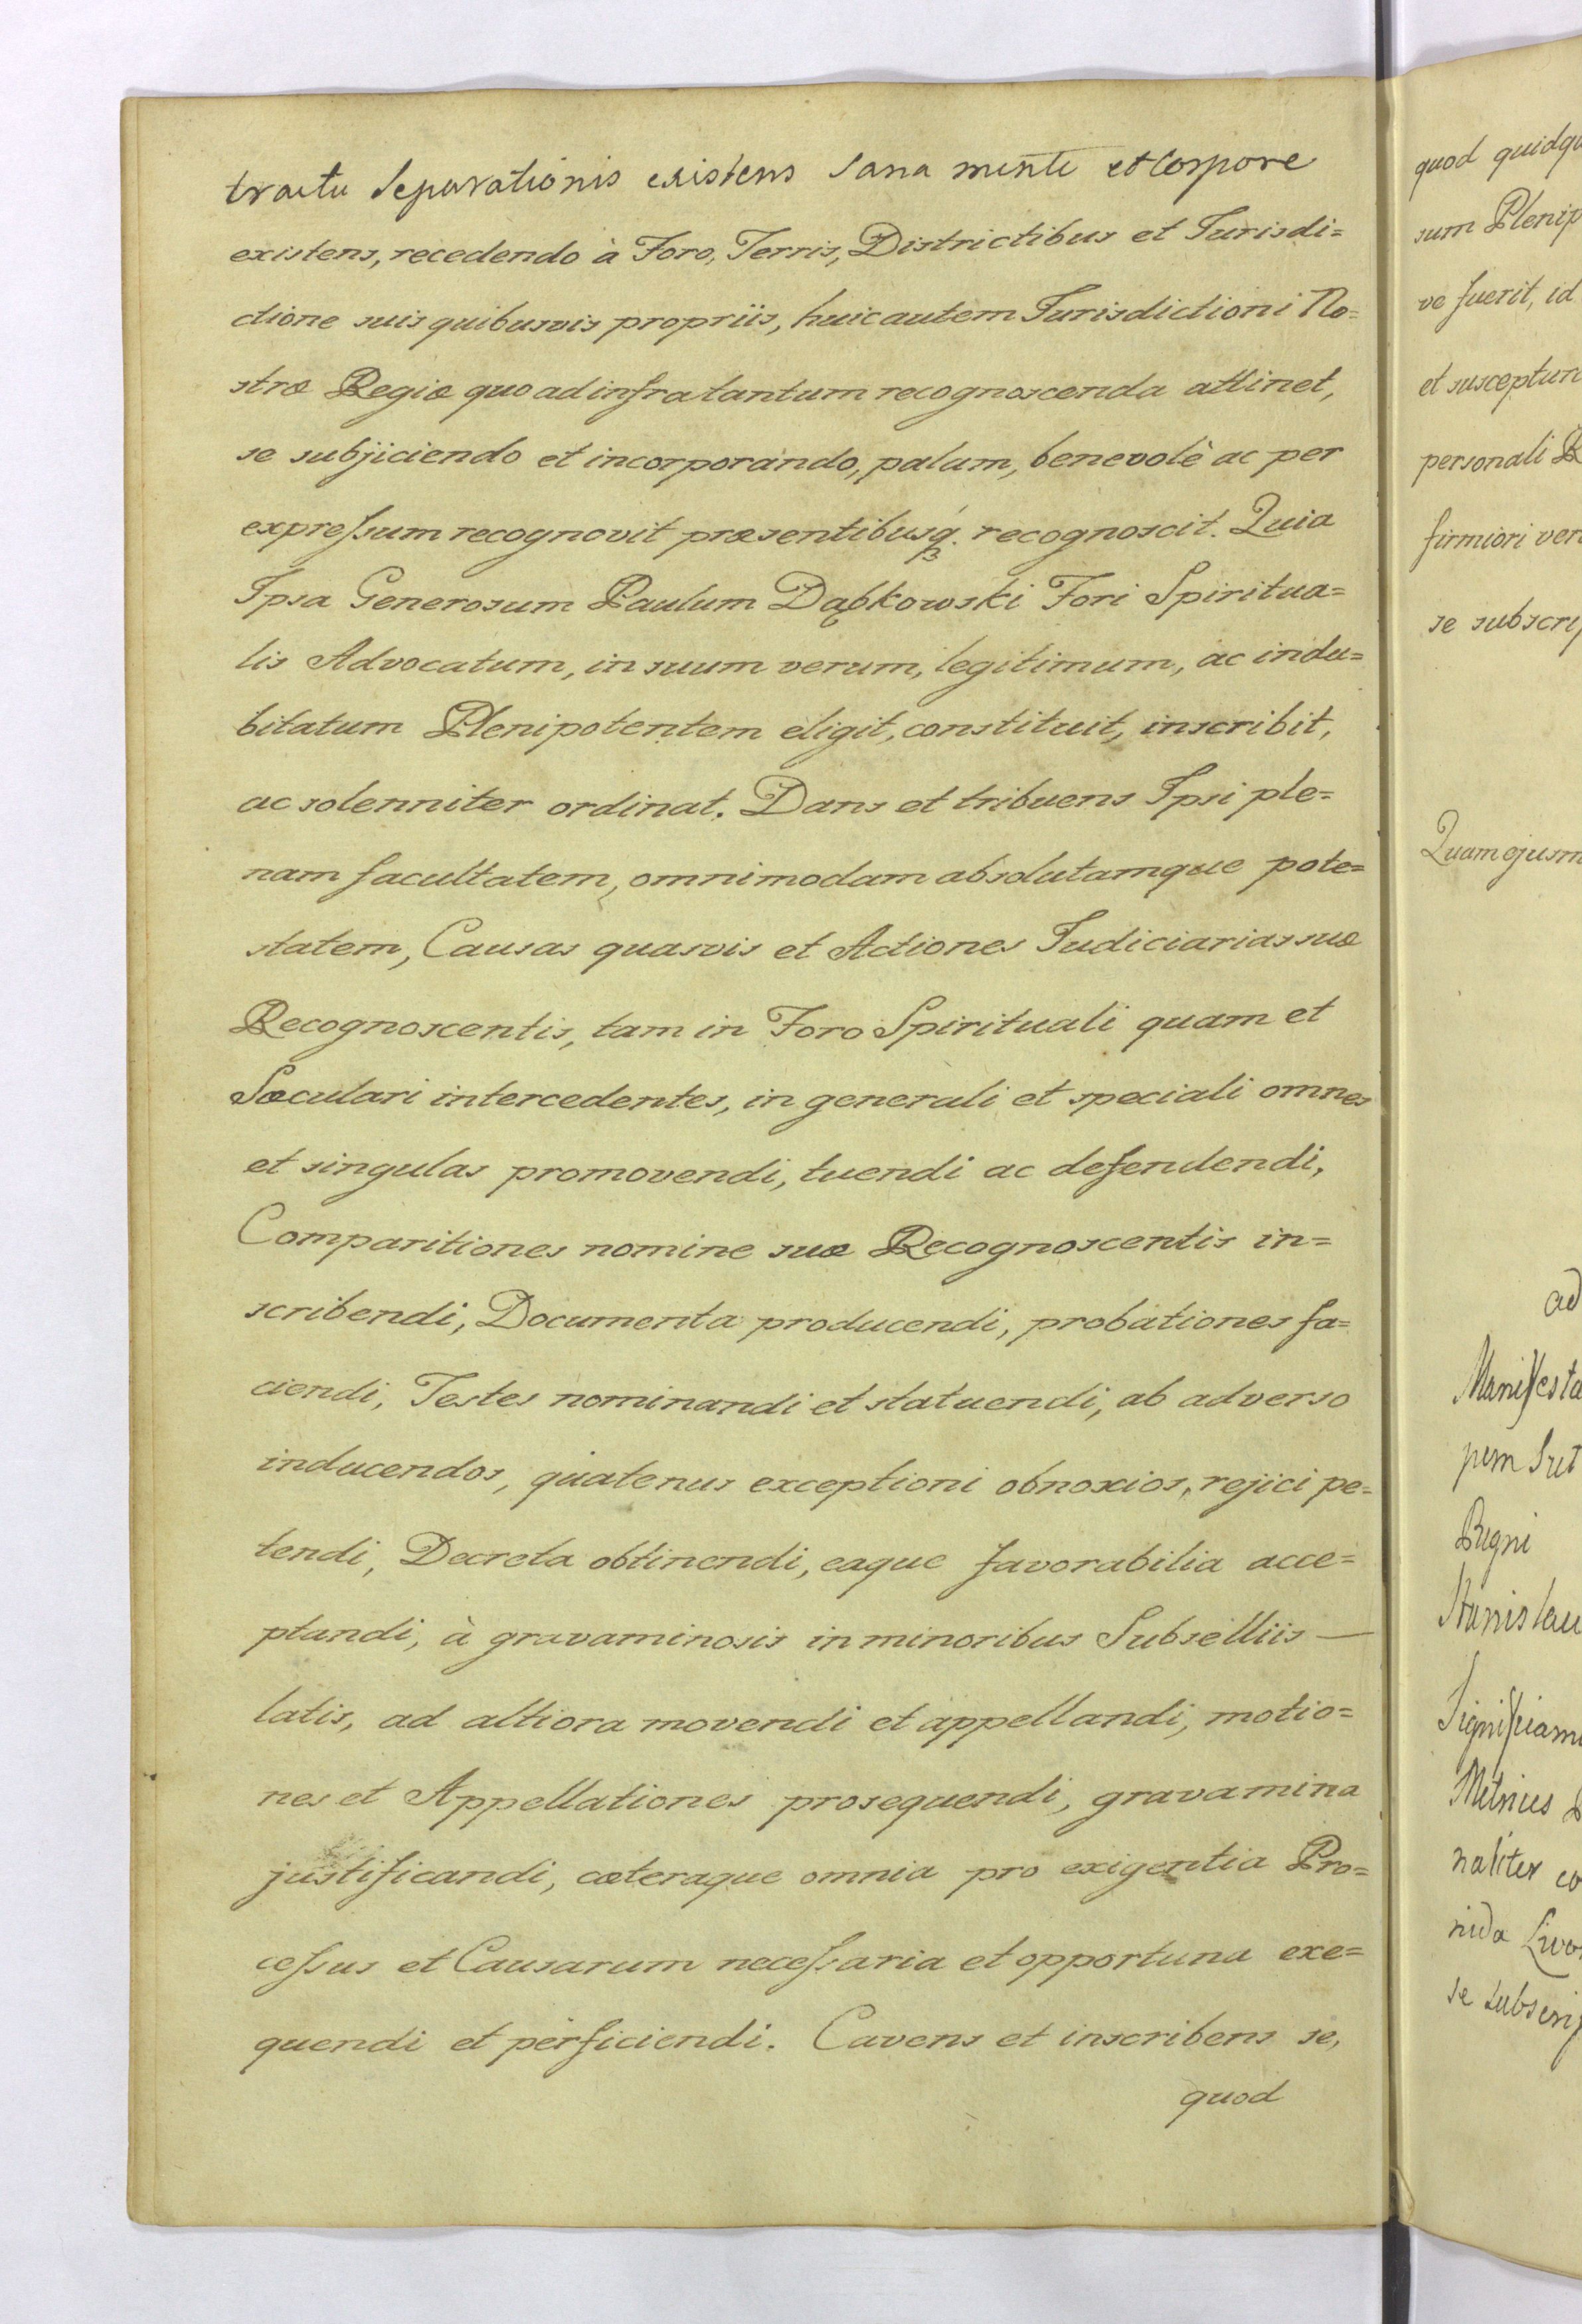 tractu Separationis existens Sana mente et Corpore
existens, recedendo à Foro, Terris, Districtibus et Jurisdi=
ctione suis quibusvis propriis, huic autem Jurisdictioni No=
stræ Regiæ quo ad infra tantum recognoscenda attinet,
se subjiciendo et incorporando, palam, benevolè ac per
expreſsum recognovit præsentibusq. recognoscit. Quia
Ipsa Generosum Paulum Dąbkowski Fori Spiritua=
lis Advocatum, in suum verum, legitimum, ac indu=
bitatum Plenipotentem eligit, constituit, inscribit,
ac solenniter ordinat. Dans et tribuens Ipsi ple=
nam facultatem, omnimodam absolutamque pote=
statem, Causas quasvis et Actiones Judiciarias suæ
Recognoscentis, tam in Foro Spirituali quam et
Sæculari intercedentes, in generali et speciali omnes
et singulas promovendi, tuendi ac defendendi,
Comparitiones nomine suæ Recognoscentis in=
scribendi, Documenta producendi, probationes fa=
ciendi, Testes nominandi et statuendi, ab adverso
inducendos, quatenus exceptioni obnoxios, rejici pe=
tendi, Decreta obtinendi, eaque favorabilia acce=
ptandi, à gravaminosis in minoribus Subselliis —
latis, ad altiora movendi et appellandi, motio=
nes et Appellationes prosequendi, gravamina
justificandi, cæteraque omnia pro exigentia Pro=
ceſsus et Causarum neceſsaria et opportuna exe=
quendi et perficiendi. Cavens et inscribens se,
quod
quod quidqu
sum Plenip
ve fuerit, id
et susceptur
personali R
firmiori ver
se subscrip
Quam ejusm
ad
Manifesta
Regni
Stanislau
Significam
Mielnices
naliter co
se subscrip